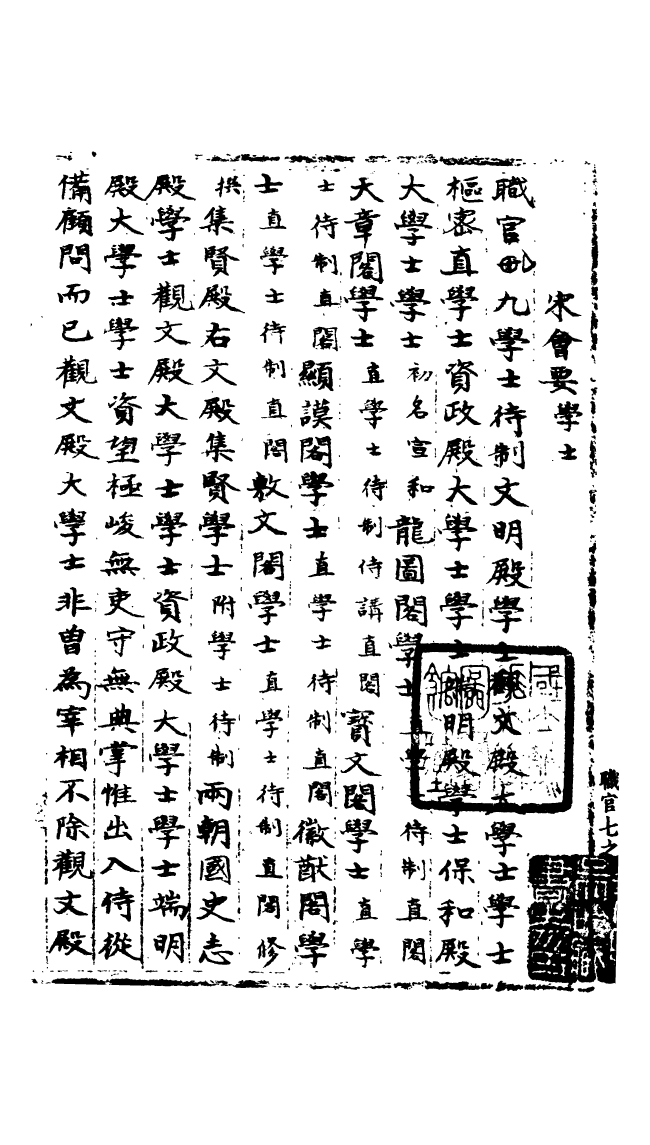 宋會要學士
職官 九學士待制文明殿學士觀文殿大學士學士
樞密直學士資政殿大學士學士 明殿學士保和殿
大學士學士初名宣和龍圖閣學士直學士待制直閣
天章閣學士直學士待制侍講直閣寶文閣學士直學
士待制直閣顯謨閣學士直學士待制直閣徽猷閣學
士直學士待制直閣敷文閣學士直學士待制直閣修
撰集賢殿右文殿集賢學士附學士待制兩朝國史志
殿學士觀文殿大學士學士資政殿大學士學士端明
殿大學士學士資望極峻無吏守無典掌惟出入侍從
備顧問而已觀文殿大學士非曾為宰相不除觀文殿
職官七之